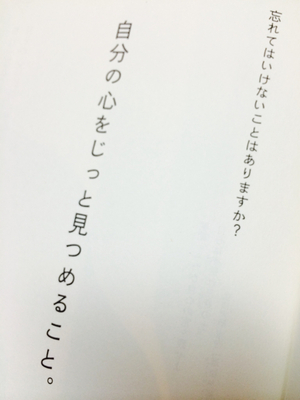 忘れてはいけないことはありますか?
自分の心をじっと見つめること。